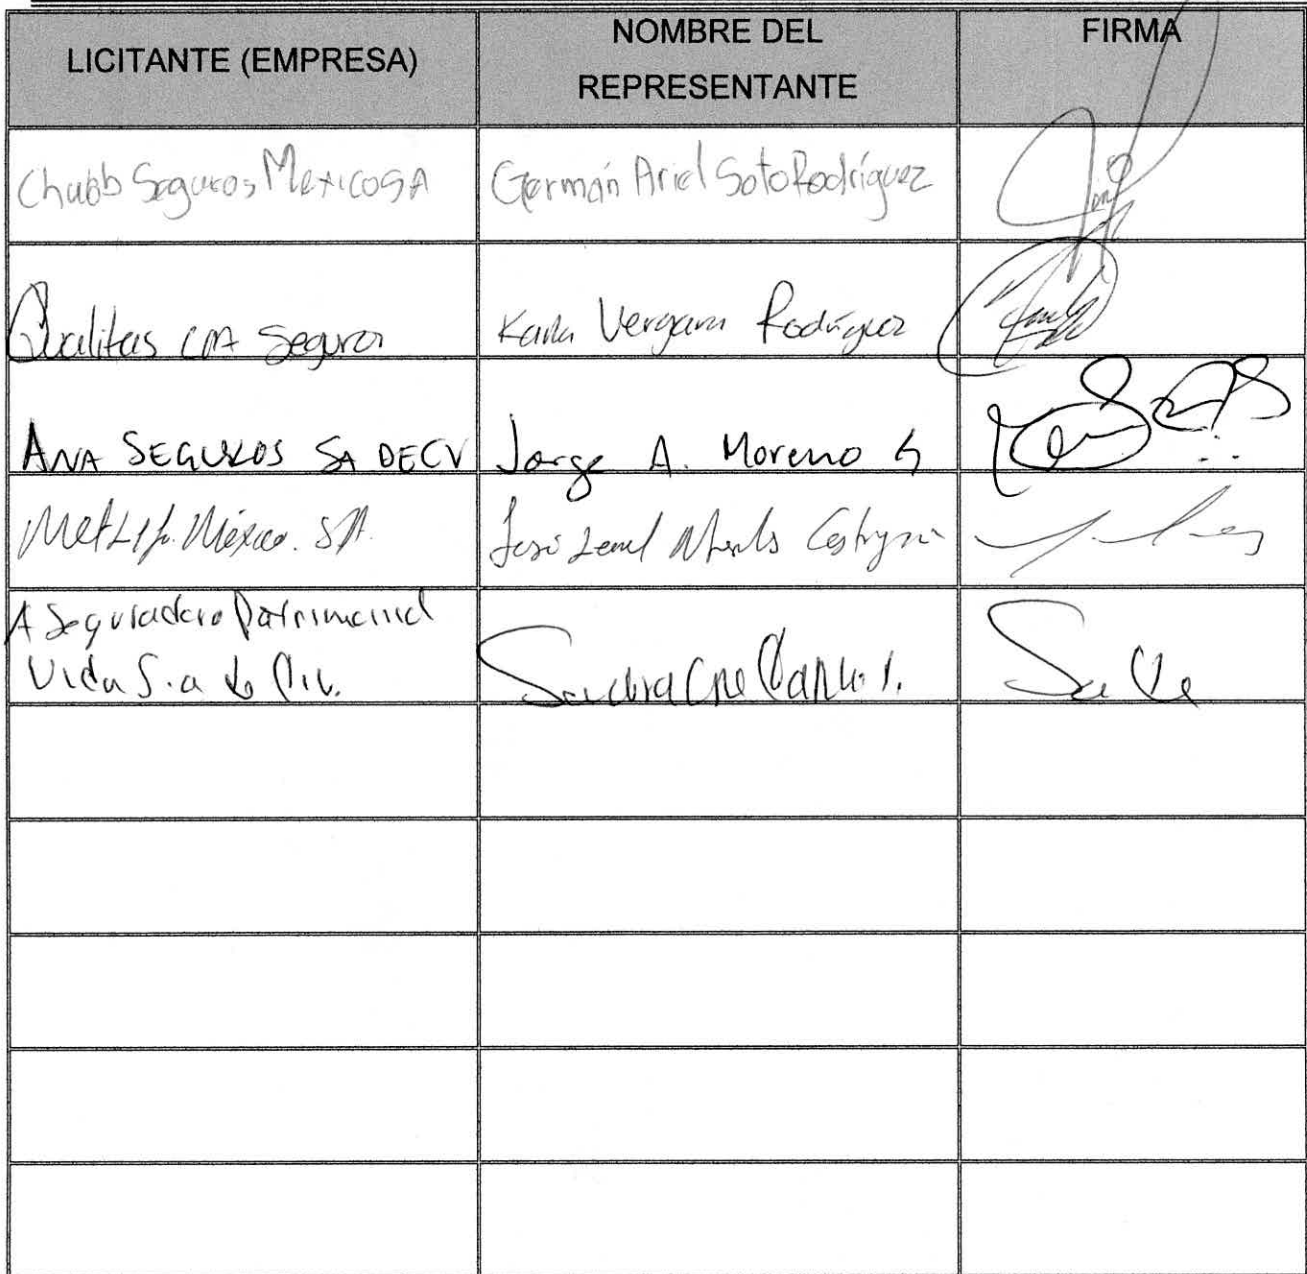 LICITANTE (EMPRESA)
NOMBRE DEL
REPRESENTANTE
FIRMA
Chubb Seguros Mexico SA
Germán Ariel Soto Rodríguez
Qualitas CIA Seguros
Karla Vergara Rodríguez
ANA SEGUROS SA DE CV
Jorge A. Moreno G
MetLife México. S.A.
José
Aseguradora Patrimonial
Vida S.a de C.v.
Sandra